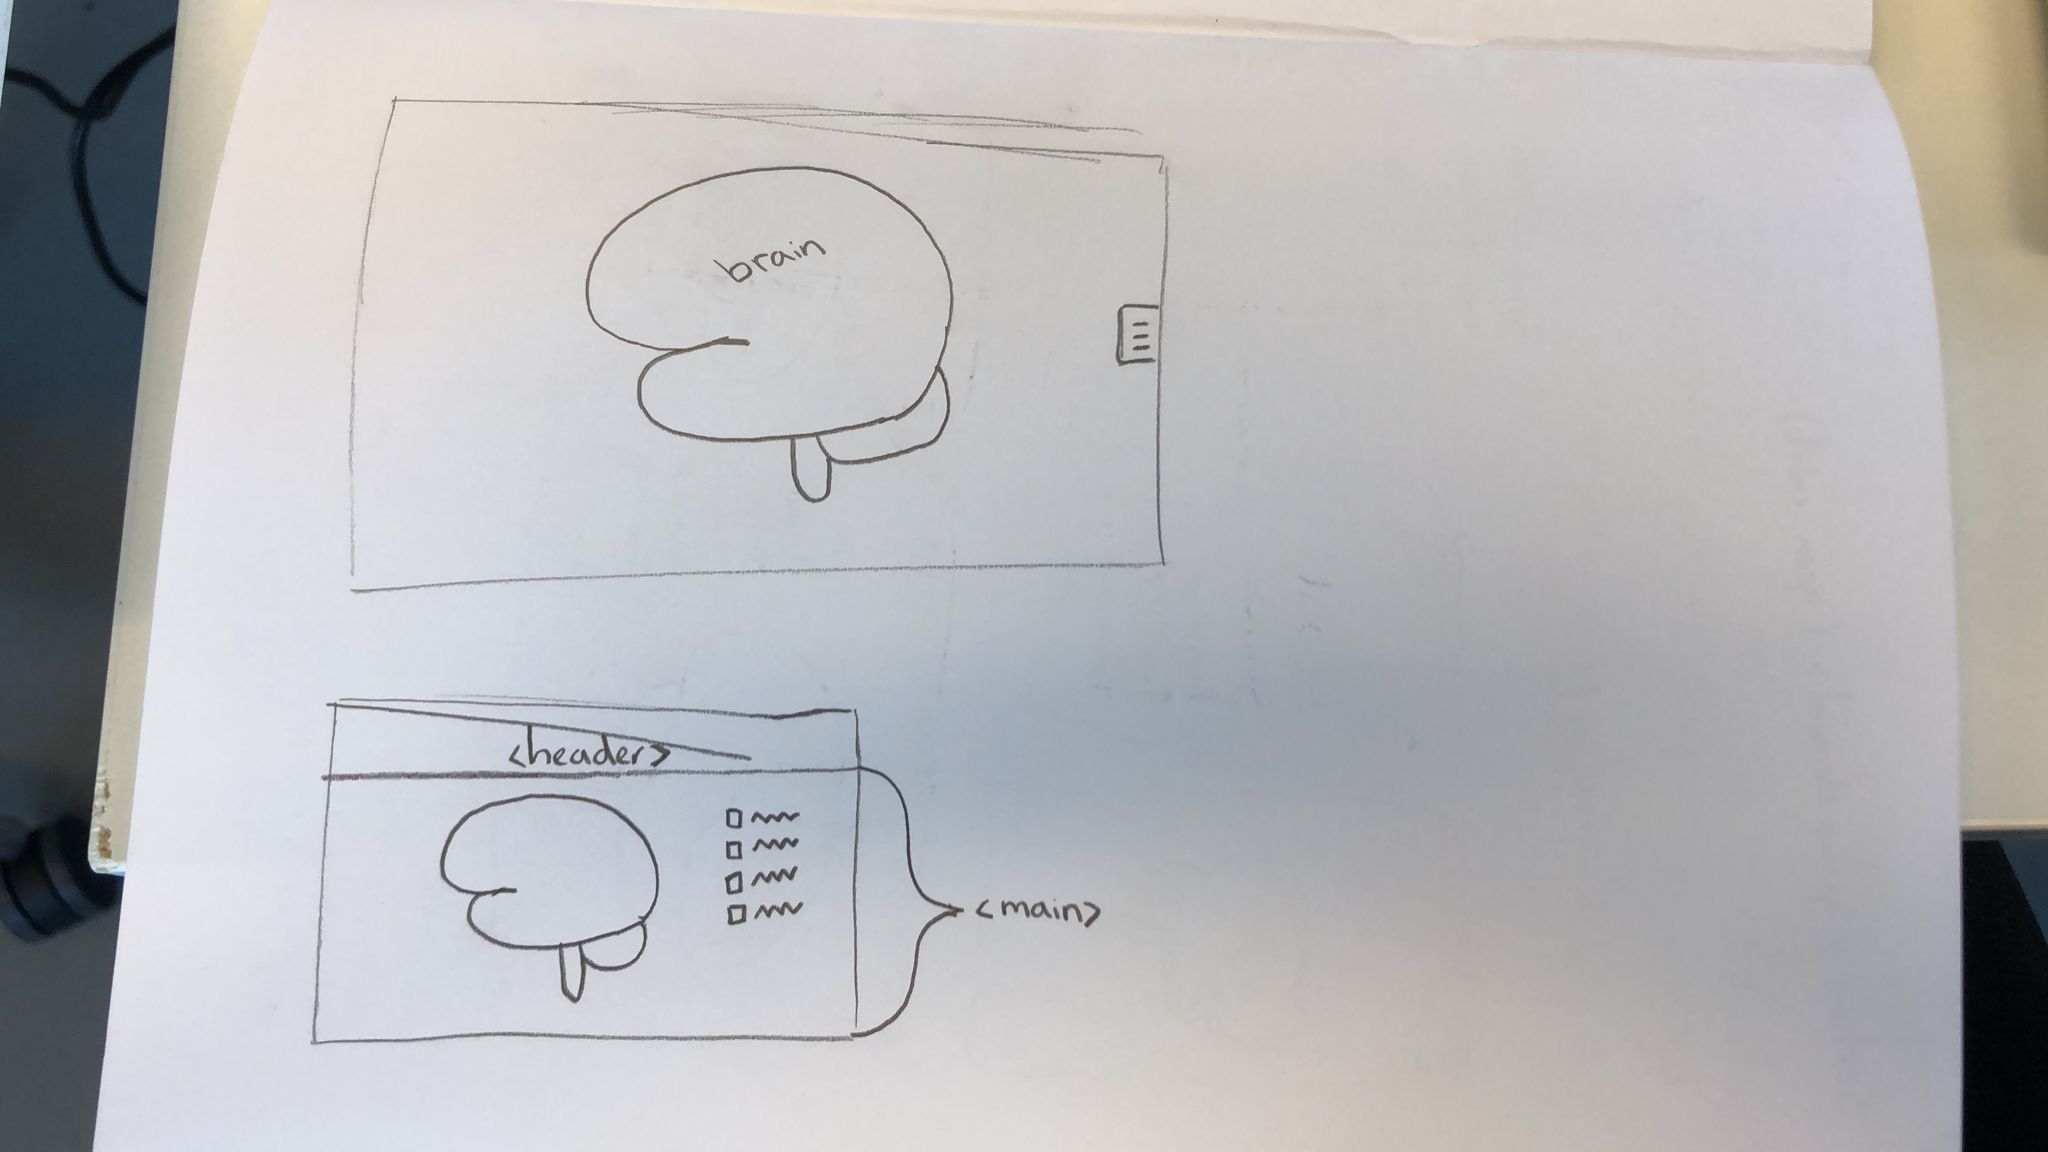 brain
<header>
<main>